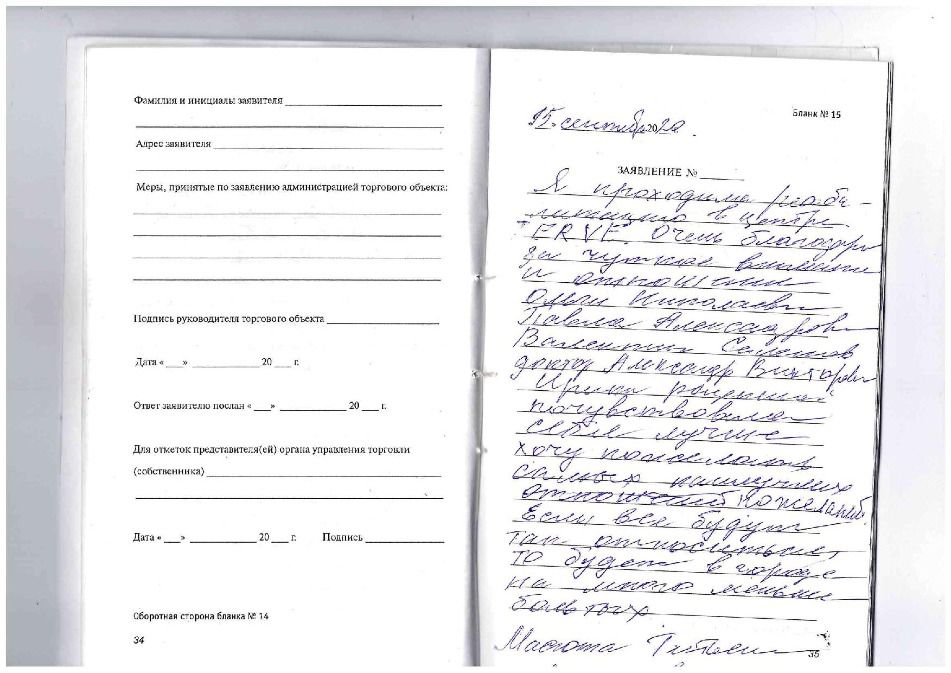 Фамилия и инициалы заявителя
Адрес заявителя
Меры, принятые по заявлению администрацией торгового объекта:
Подпись руководителя торгового объекта
Дата « » 20 г.
Ответ заявителю послан « » 20 г.
Для отметок представителя(ей) органа управления торговли
(собственника)
Дата « » 20 г. Подпись
Оборотная сторона бланка № 14
34
Бланк № 15
15 сентябр 2020
ЗАЯВЛЕНИЕ №
Я проходила реаби-
литацию в центре
ERVE. Очень благодарн
за чуткое внимание
и отношении
Николаевн
Павла Александрович
Валентин
доктор Александр Викторович
Ирина
почувствовала
себя лучше
хочу пожелать
самых наилучших
отношений пожеланий.
Если все будут
так относиться,
то будет в городе
на много меньше
больных
35